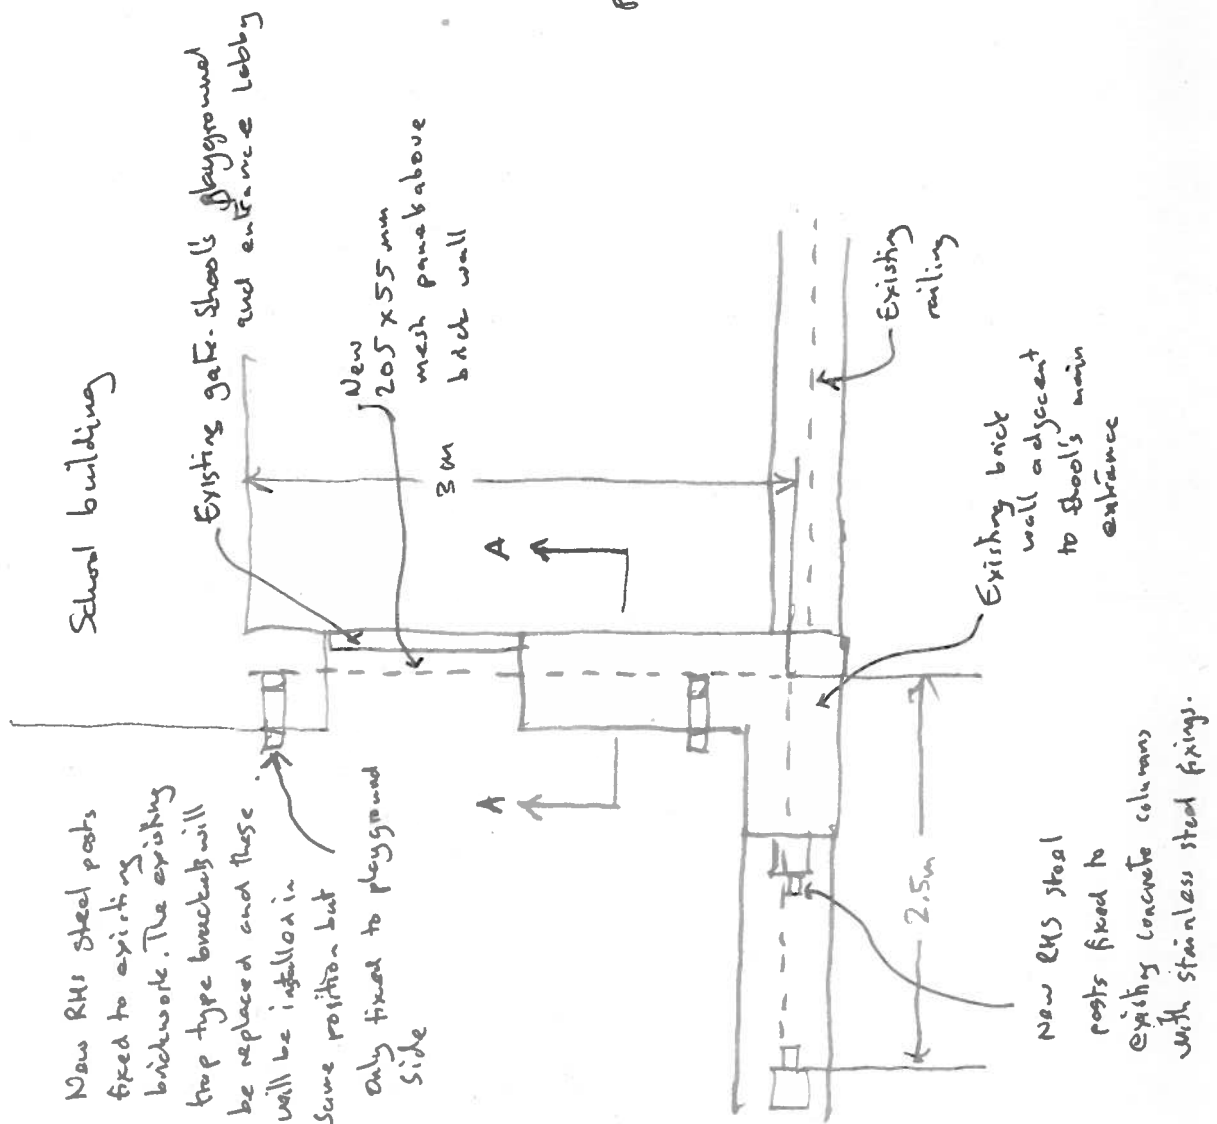 School building
Existing gate. Shool's playground
and entrance Lobby
New
205 x 55 mm
mesh panels above
brick wall
3 m
A
A
Existing
railing
Existing brick
wall adjacent
to Shool's main
entrance
New RHS steel posts
fixed to existing
brickwork. The existing
trap type brackets will
be replaced and these
will be installed in
Same position but
only fixed to playground
Side
2.5m
New RHS steel
posts fixed to
existing concrete columns
with stainless steel fixings.